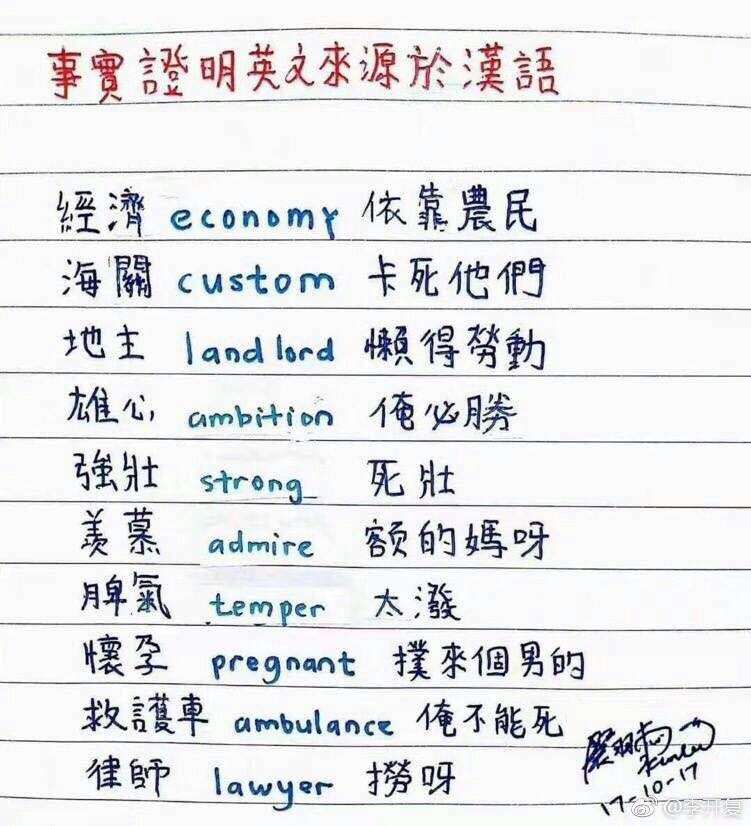 事實證明英文來源於漢語
經濟 economy 依靠農民
海關 custom 卡死他們
地主 landlord 懶得勞動
雄心 ambition 俺必勝
強壯 strong 死壯
羨慕 admire 額的媽呀
脾氣 temper 太潑
懷孕 pregnant 撲來個男的
救護車 ambulance 俺不能死
律師 lawyer 撈呀
17-10-17
@李开复